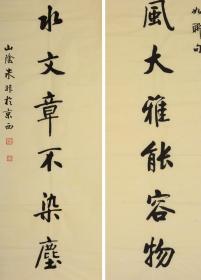 風大雅能容物
水文章不染塵
山陰於京西